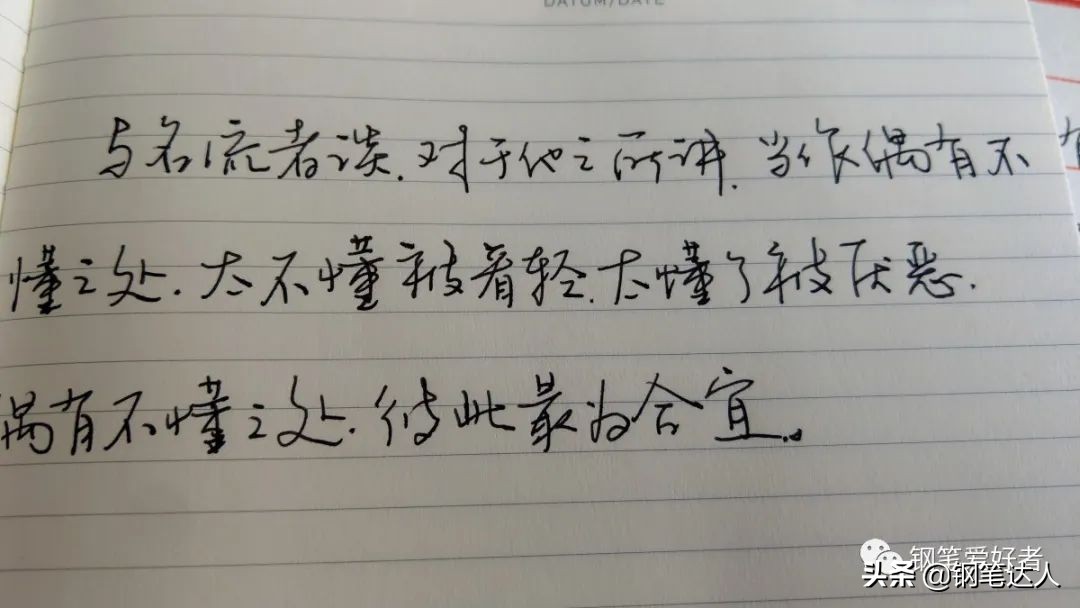 DATUM/DATE
与名流者谈.对于他之所讲.当作偶有不
懂之处.太不懂被看轻.太懂了被厌恶.
偶有不懂之处.彼此最为合宜。
钢笔爱好者
头条 @钢笔达人